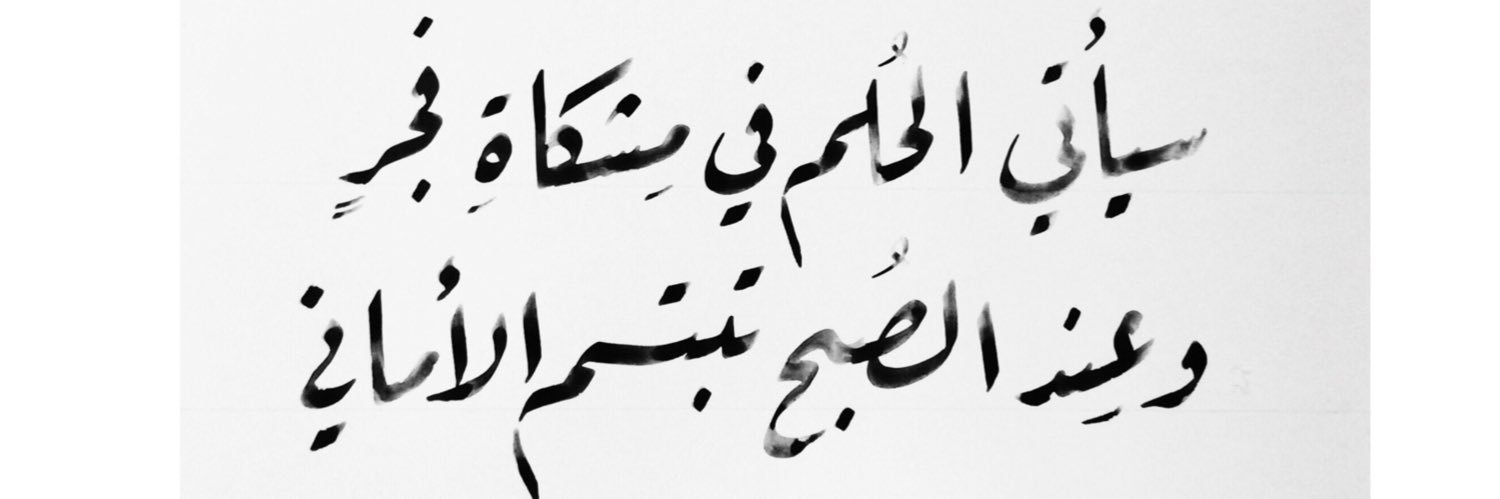 سيأتي الحُلم في مِشكَاةِ فجرٍ
وعِند الصُبح تبتسم الأُماني